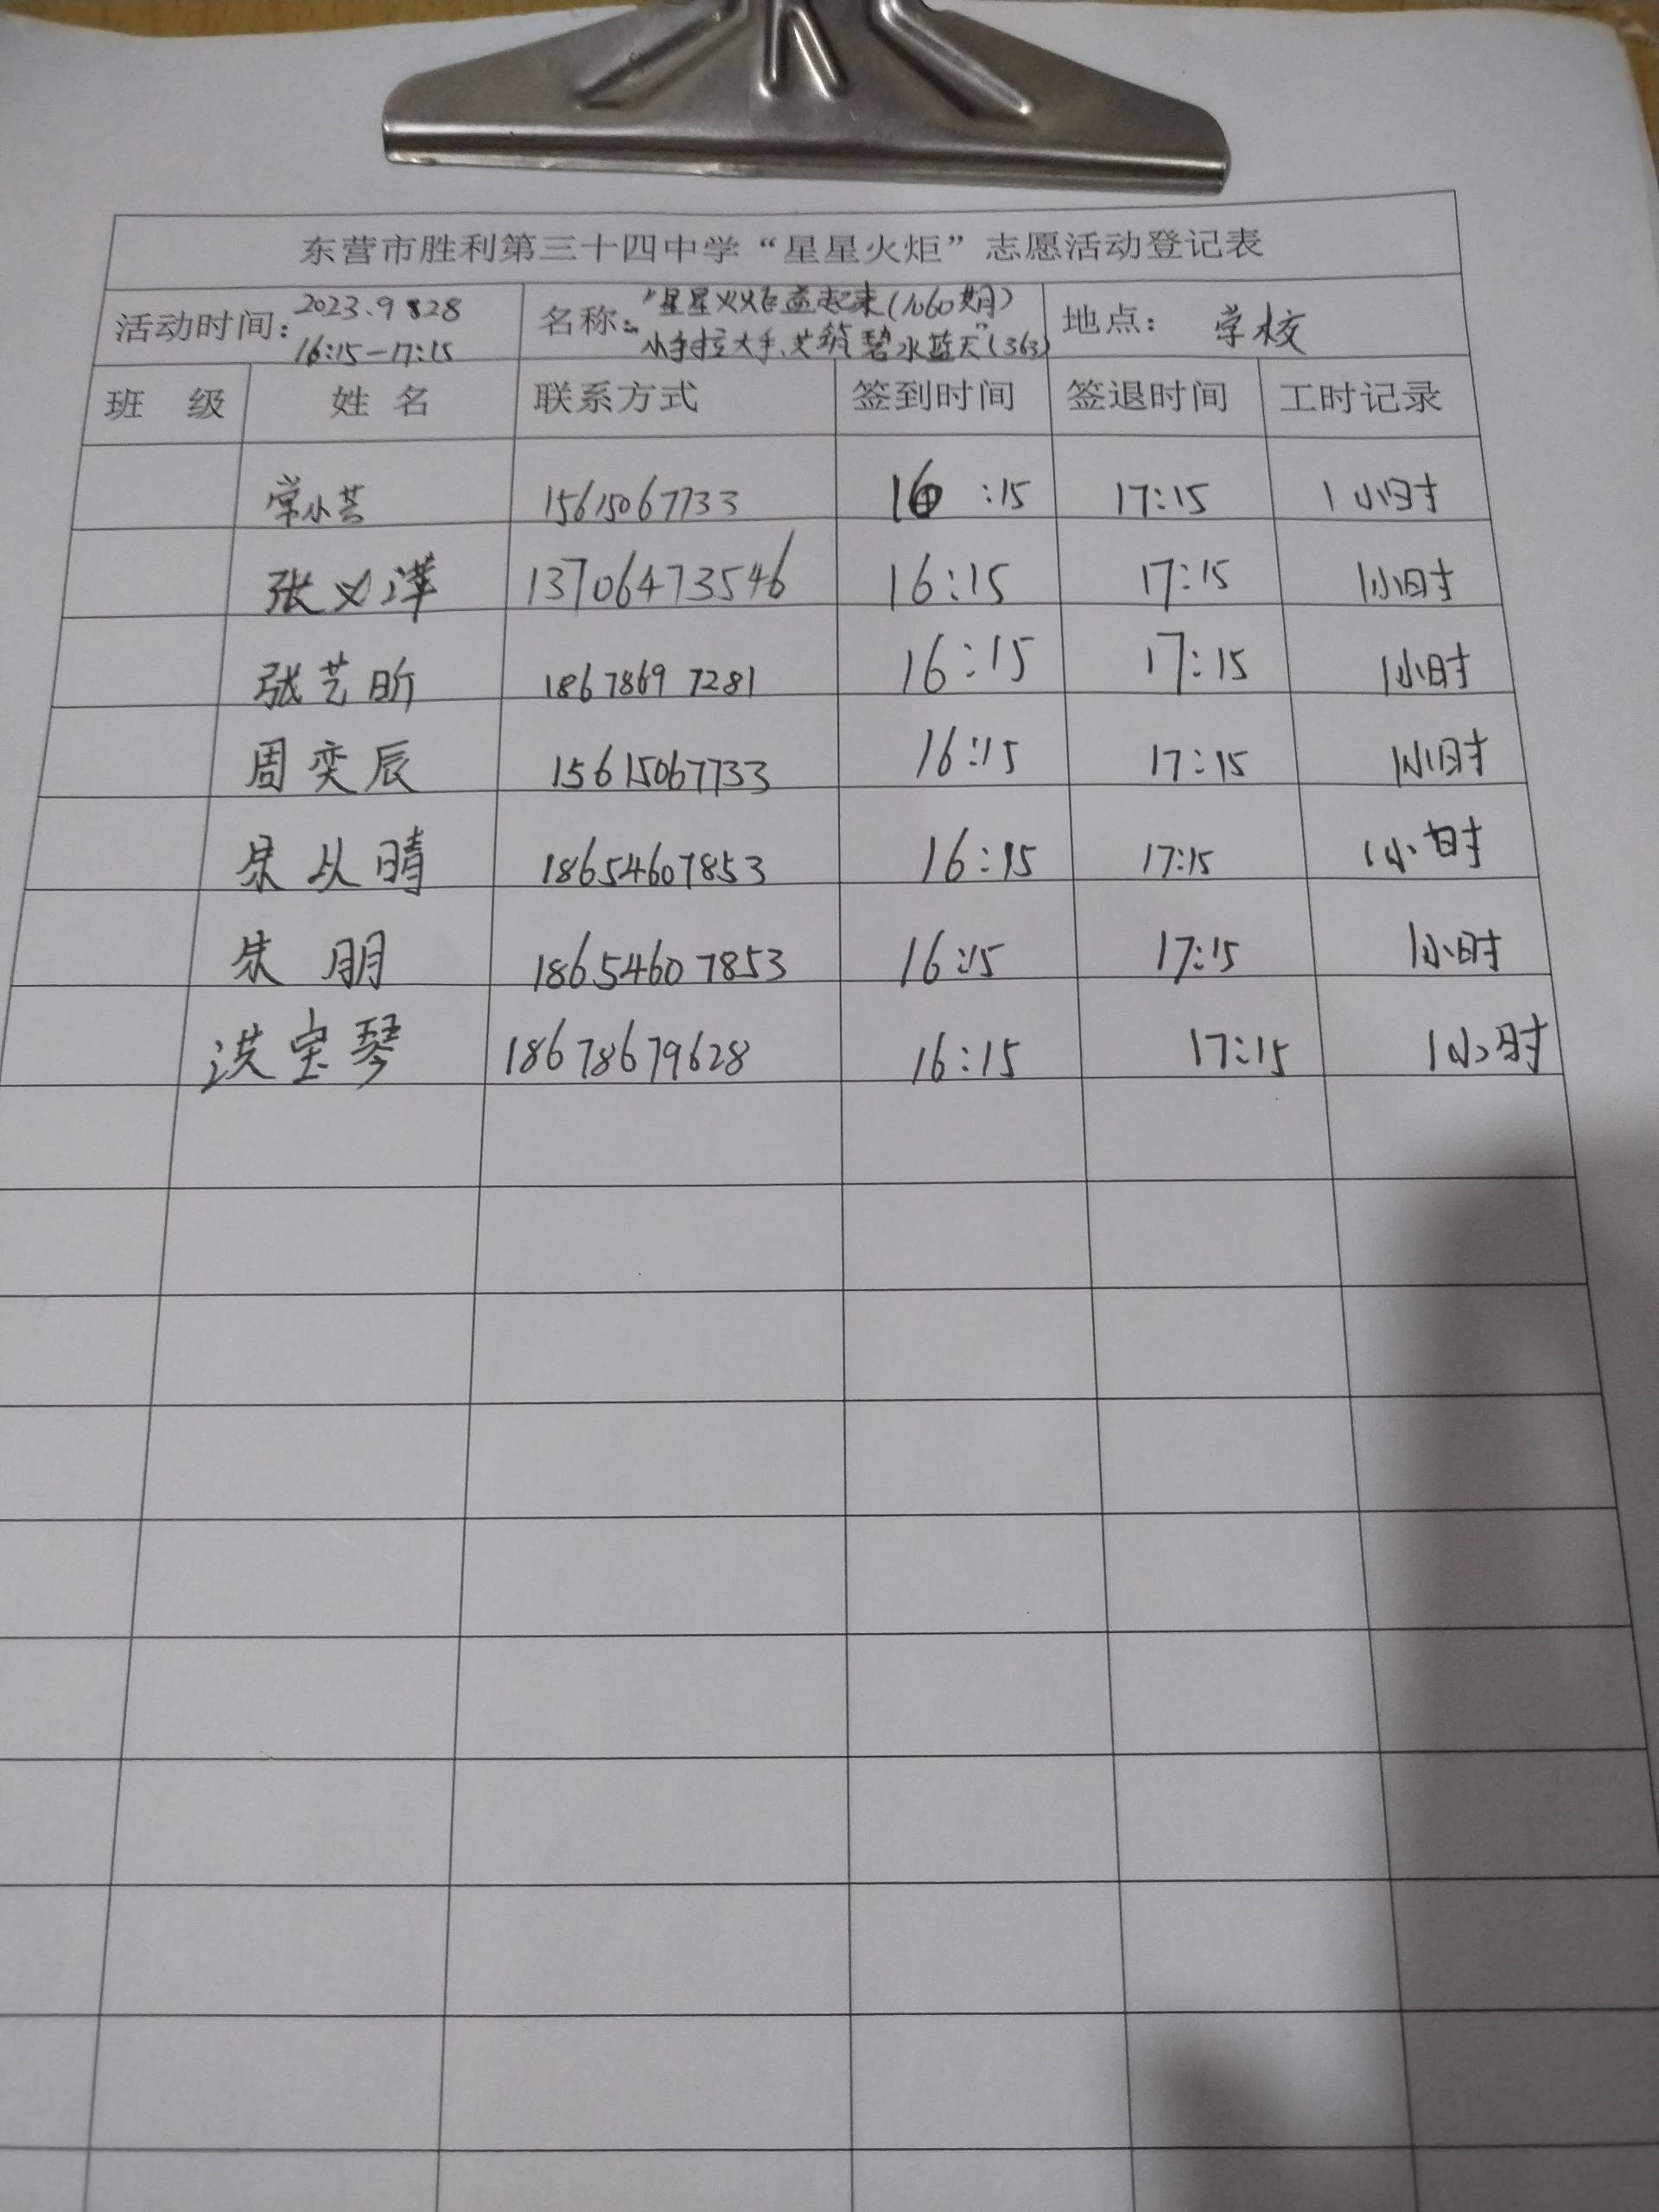 东营市胜利第三十四中学“星星火炬”志愿活动登记表
活动时间：2023.9.28 16:15-17:15 名称：“星星火炬益起来(1060期) 小手拉大手、共筑碧水蓝天”(363) 地点：学校
班 级 姓 名 联系方式 签到时间 签退时间 工时记录
常小芸 15615067733 16:15 17:15 1小时
张义洋 13706473546 16:15 17:15 1小时
张艺昕 18678697281 16:15 17:15 1小时
周奕辰 15615067733 16:15 17:15 1小时
朱从晴 18654607853 16:15 17:15 1小时
朱朋 18654607853 16:15 17:15 1小时
洪宝琴 18678679628 16:15 17:15 1小时